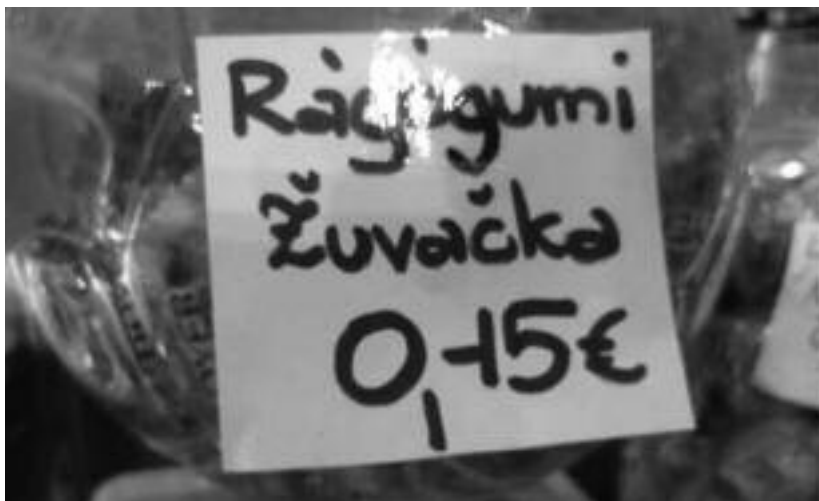 Rágógumi
Žuvačka
0,15€